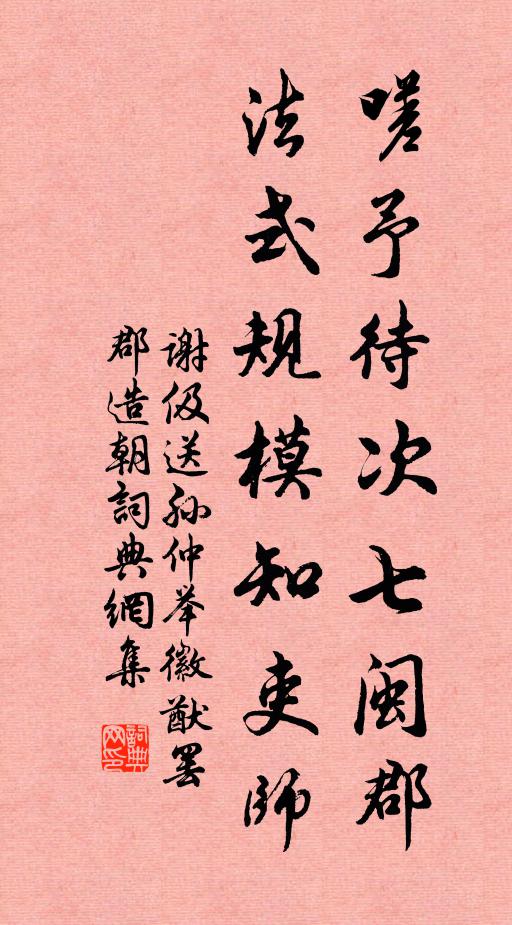 嗟予待次七闽郡
法式规模知吏师
谢伋送孙仲举徽猷罢
郡造朝詞典網集
詞典
网印